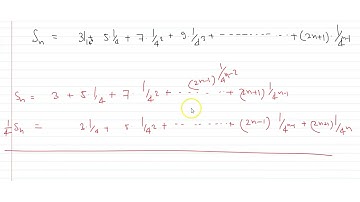 Sₙ = 3/1 + 5·1/4 + 7·1/4² + 9·1/4³ + ---------- + (2n+1)·1/4ⁿ⁻¹
Sₙ = 3 + 5·1/4 + 7·1/4² + ------ (2n-1) 1/4ⁿ⁻² + (2n+1) 1/4ⁿ⁻¹
1/4 Sₙ = 3 1/4 + 5 1/4² + ------ + (2n-1) 1/4ⁿ⁻¹ + (2n+1) 1/4ⁿ